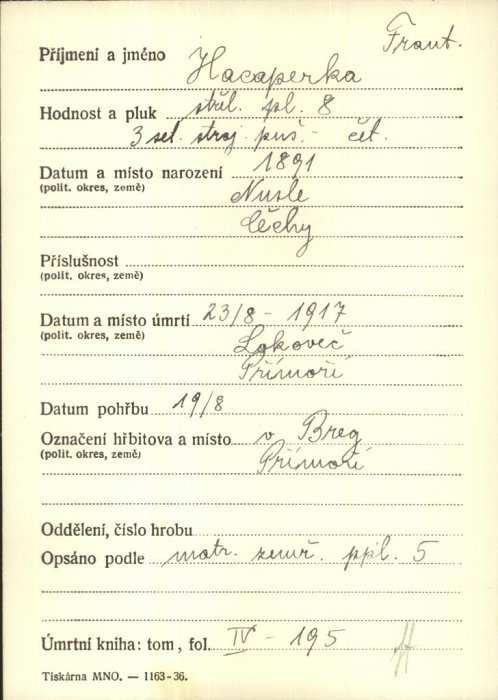 Frant.
Příjmení a jméno Hacaperka
Hodnost a pluk střel. pl. 8
3 set. stroj. puš. - čet.
Datum a místo narození 1891
(polit. okres, země) Nusle
Čechy
Příslušnost
(polit. okres, země)
Datum a místo úmrtí 23/8 - 1917
(polit. okres, země) Lokoveč
Přímoří
Datum pohřbu 19/8
Označení hřbitova a místo v Breg
(polit. okres, země) Přímoří
Oddělení, číslo hrobu
Opsáno podle matr. zemř. ppl. 5
Úmrtní kniha: tom, fol. IV - 195
Tiskárna MNO. — 1163-36.